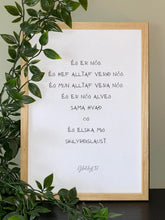 ÉG ER NÓG
ÉG HEF ALLTAF VERIÐ NÓG
ÉG MUN ALLTAF VERA NÓG
ÉG ER NÓG ALVEG
SAMA HVAÐ
OG
ÉG ELSKA MIG
SKILYRÐISLAUST